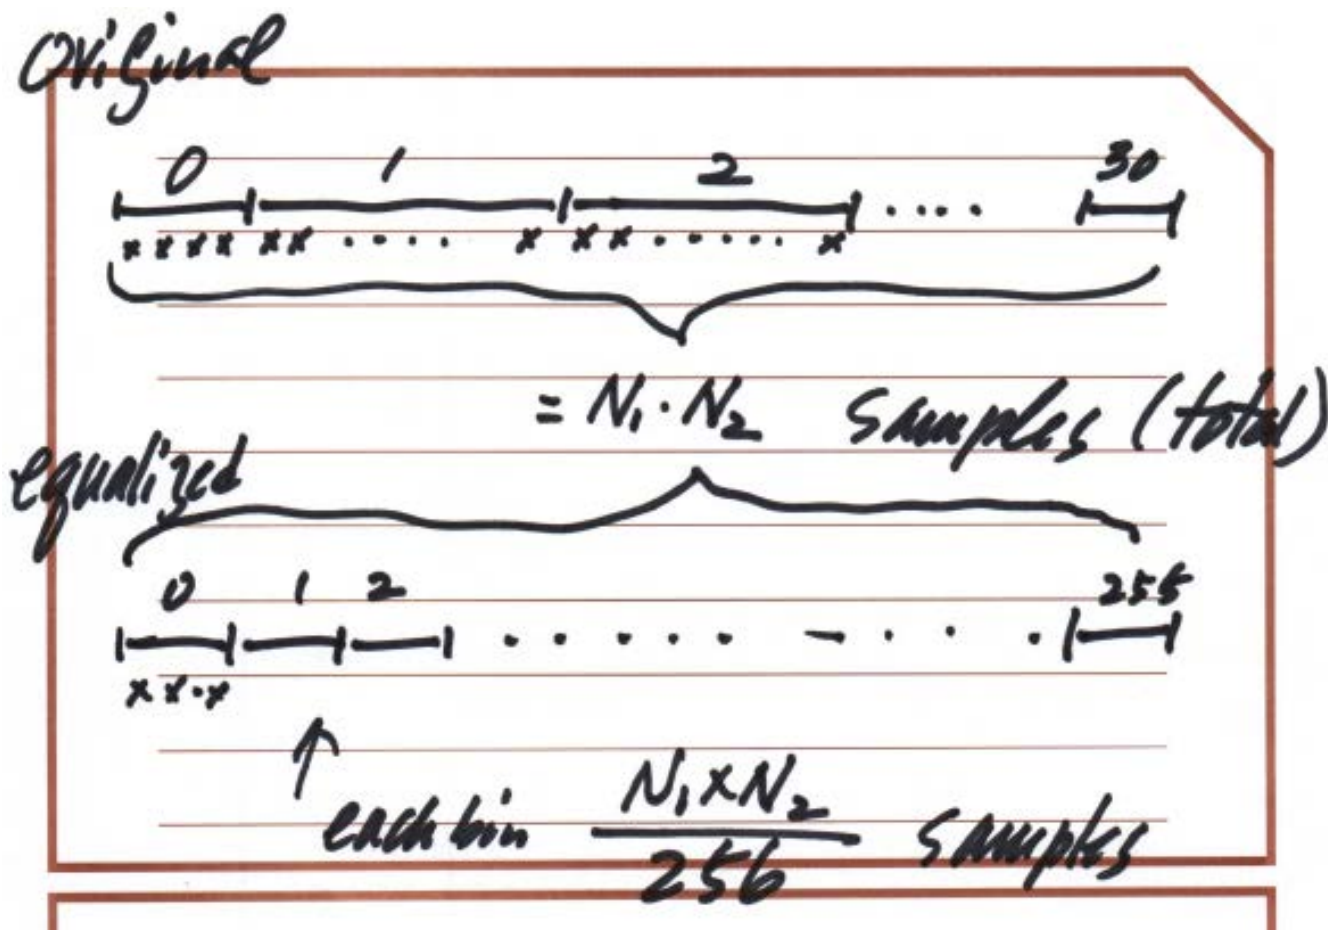 Original
0 1 2 .... 30
x x x x x x ..... x x x ...... x
= N₁ · N₂ samples (total)
equalized
0 1 2 255
x x . x
↑ each bin N₁ x N₂ / 256 samples